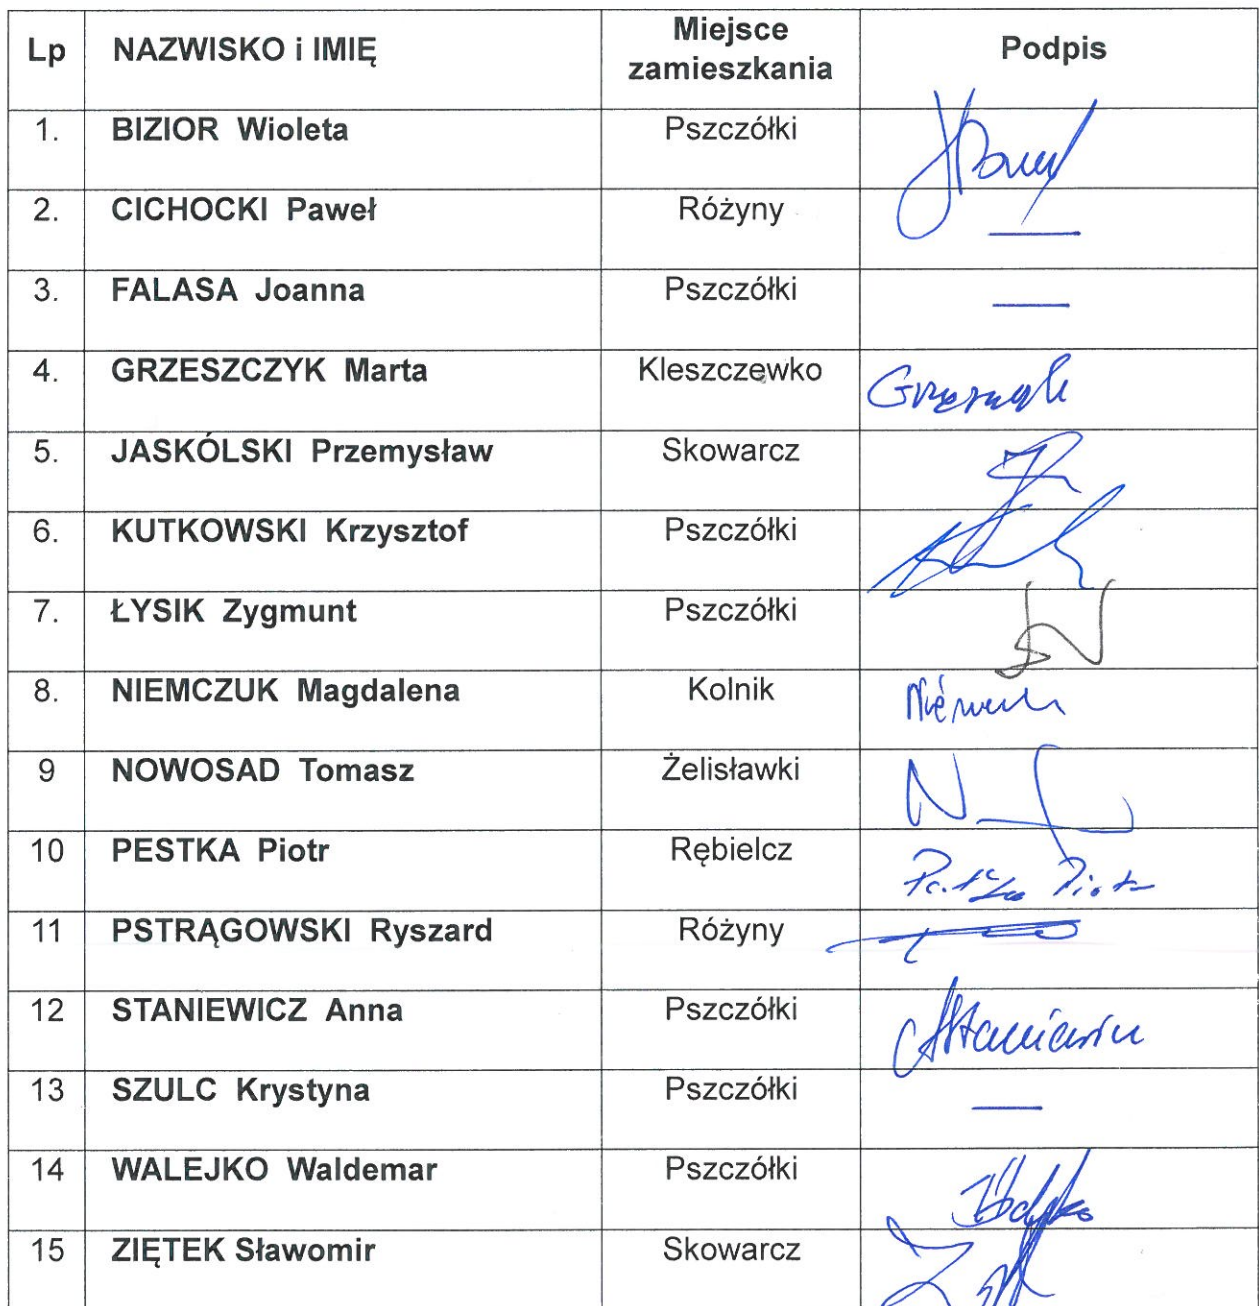 Lp NAZWISKO i IMIĘ Miejsce zamieszkania Podpis
1. BIZIOR Wioleta Pszczółki
2. CICHOCKI Paweł Różyny —
3. FALASA Joanna Pszczółki —
4. GRZESZCZYK Marta Kleszczewko
5. JASKÓLSKI Przemysław Skowarcz
6. KUTKOWSKI Krzysztof Pszczółki
7. ŁYSIK Zygmunt Pszczółki
8. NIEMCZUK Magdalena Kolnik
9 NOWOSAD Tomasz Żelisławki
10 PESTKA Piotr Rębielcz Pestka Piotr
11 PSTRĄGOWSKI Ryszard Różyny
12 STANIEWICZ Anna Pszczółki
13 SZULC Krystyna Pszczółki —
14 WALEJKO Waldemar Pszczółki
15 ZIĘTEK Sławomir Skowarcz